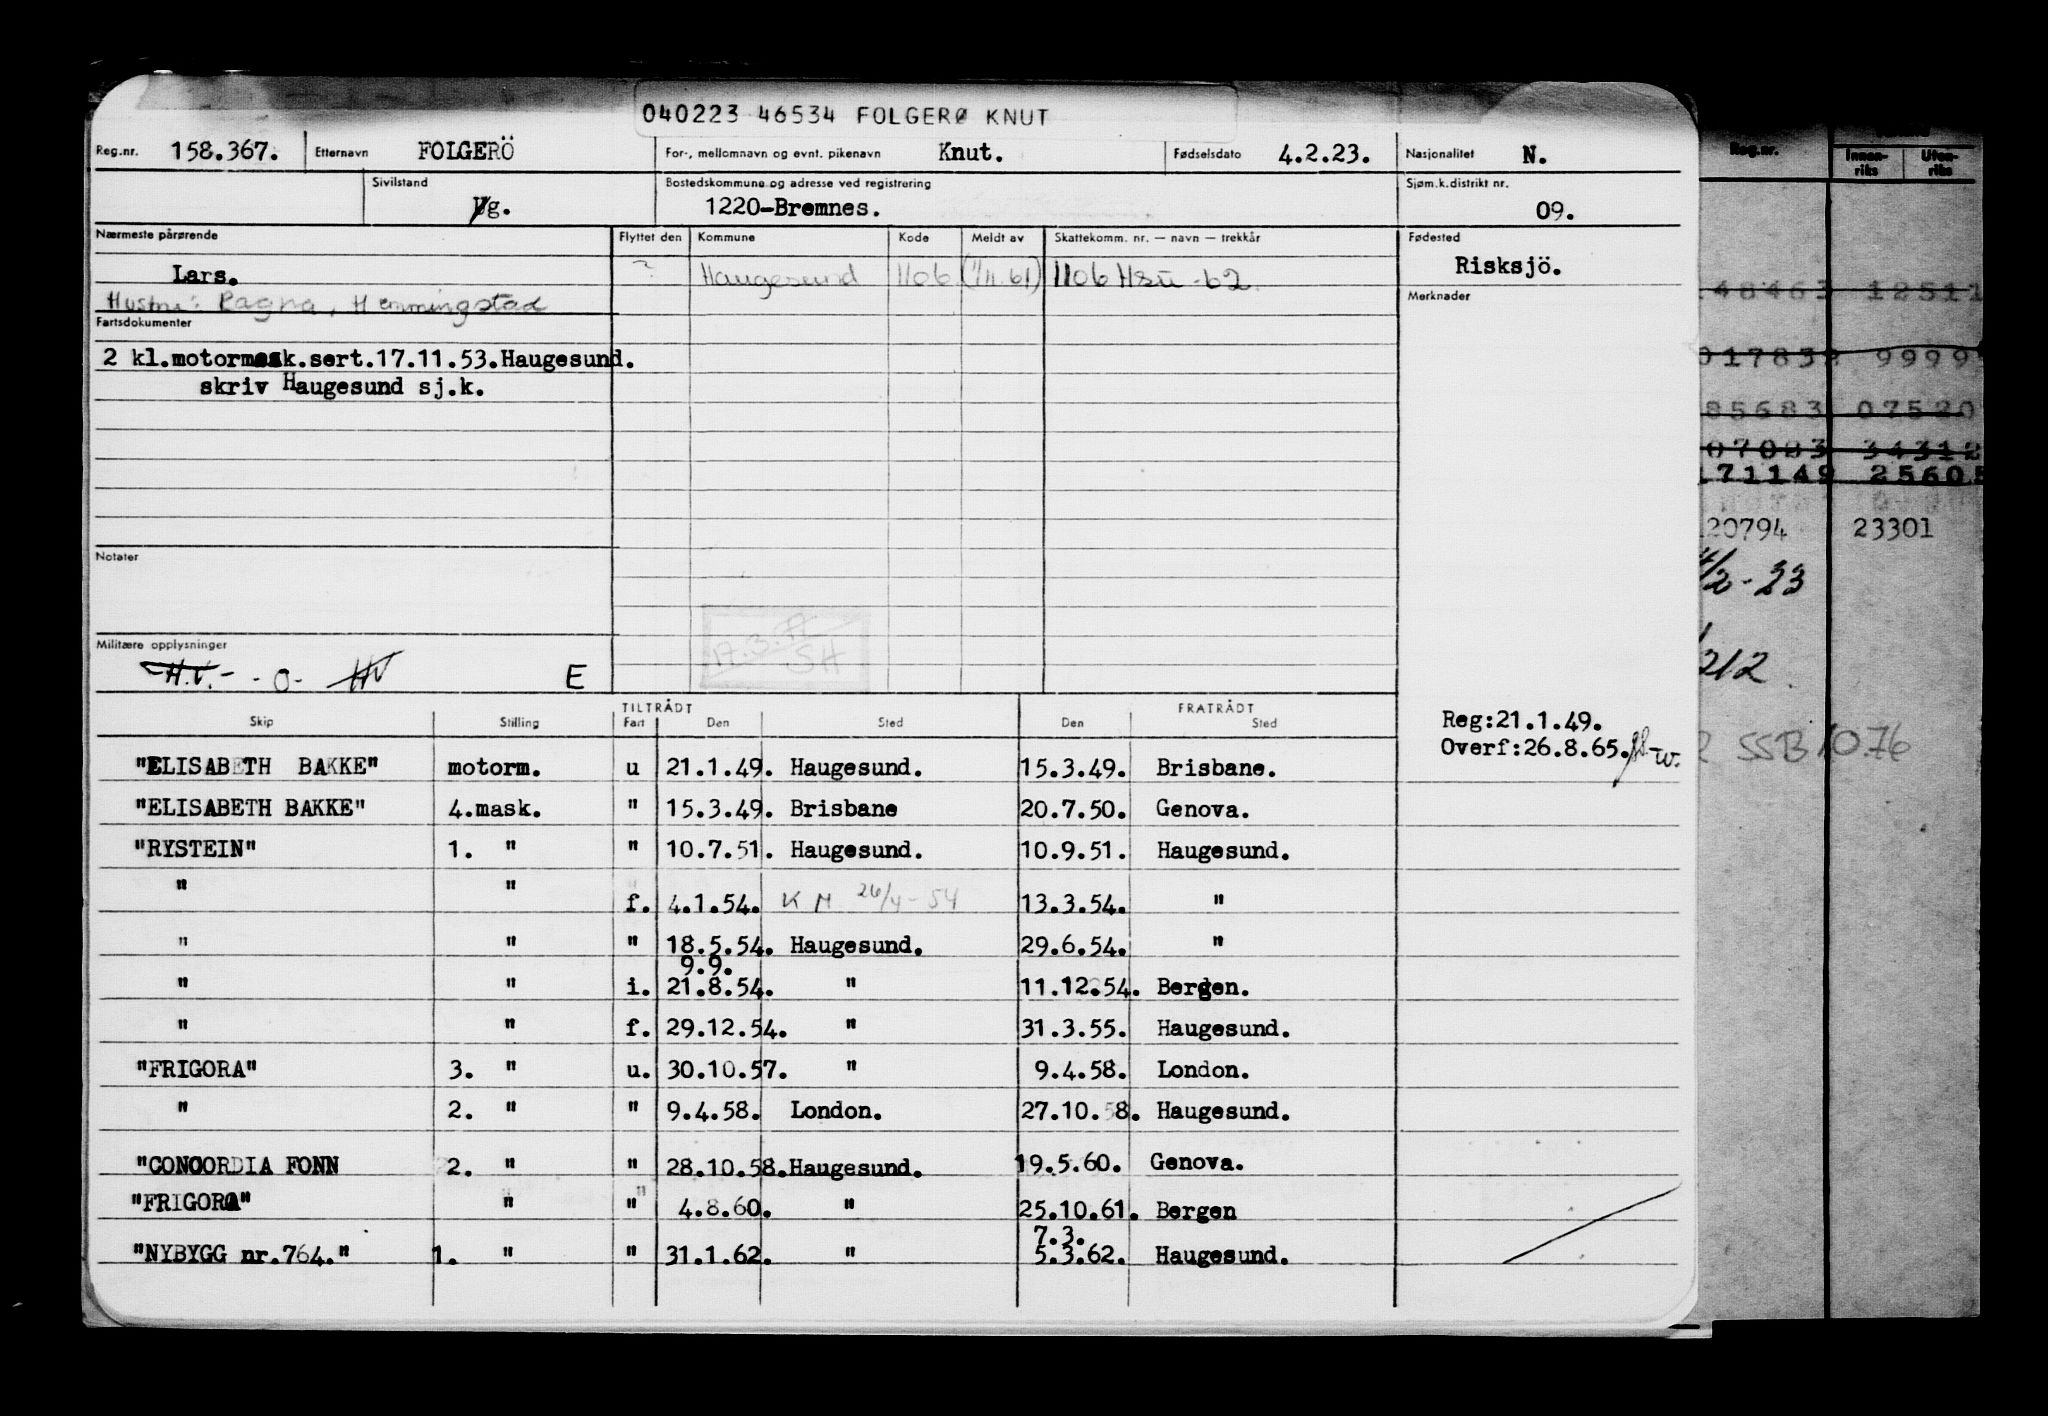 040223 46534 FOLGERØ KNUT
Reg.nr. 158.367. Etternavn FOLGERÖ For-, mellomnavn og evnt. pikenavn Knut. Fødselsdato 4.2.23. Nasjonalitet N.
Sivilstand g. Bostedskommune og adresse ved registrering 1220-Bremnes. Sjøm.k.distrikt nr. 09.
Nærmeste pårørende Flyttet den Kommune Kode Meldt av Skattekomm. nr. — navn — trekkår Fødested
Lars. ? Haugesund 1106 (1/11.61) 1106 Hsu -62 Risksjö.
Hustru: Ragna, Hemmingstad Merknader
Fartsdokumenter
2 kl.motormask.sert.17.11.53.Haugesund.
skriv Haugesund sj.k.
Notater
17.3.77
SH
Militære opplysninger
-H.V.- -0- HV E
TILTRÅDT FRATRÅDT
Skip Stilling Fart Den Sted Den Sted
Reg:21.1.49.
Overf:26.8.65.
"ELISABETH BAKKE" motorm. u 21.1.49. Haugesund. 15.3.49. Brisbane.
"ELISABETH BAKKE" 4.mask. " 15.3.49. Brisbane 20.7.50. Genova.
"RYSTEIN" 1. " " 10.7.51. Haugesund. 10.9.51. Haugesund.
" " f. 4.1.54. K N 26/4-54 13.3.54. "
" " " 18.5.54. Haugesund. 29.6.54. "
9.9.
" " i. 21.8.54. " 11.12.54. Bergen.
" " f. 29.12.54. " 31.3.55. Haugesund.
"FRIGORA" 3. " u. 30.10.57. " 9.4.58. London.
" 2. " " 9.4.58. London. 27.10.58. Haugesund.
"CONCORDIA FONN 2. " " 28.10.58. Haugesund. 19.5.60. Genova.
"FRIGORA" " " 4.8.60. " 25.10.61. Bergen
7.3.
"NYBYGG nr.764." 1. " " 31.1.62. " 5.3.62. Haugesund.
Reg.nr. Innen-riks Uten-riks
48463 12511
017832 9999
85683 07520
07083 34312
171149 25605
20794 23301
4/2-23
212
SSB 10.76